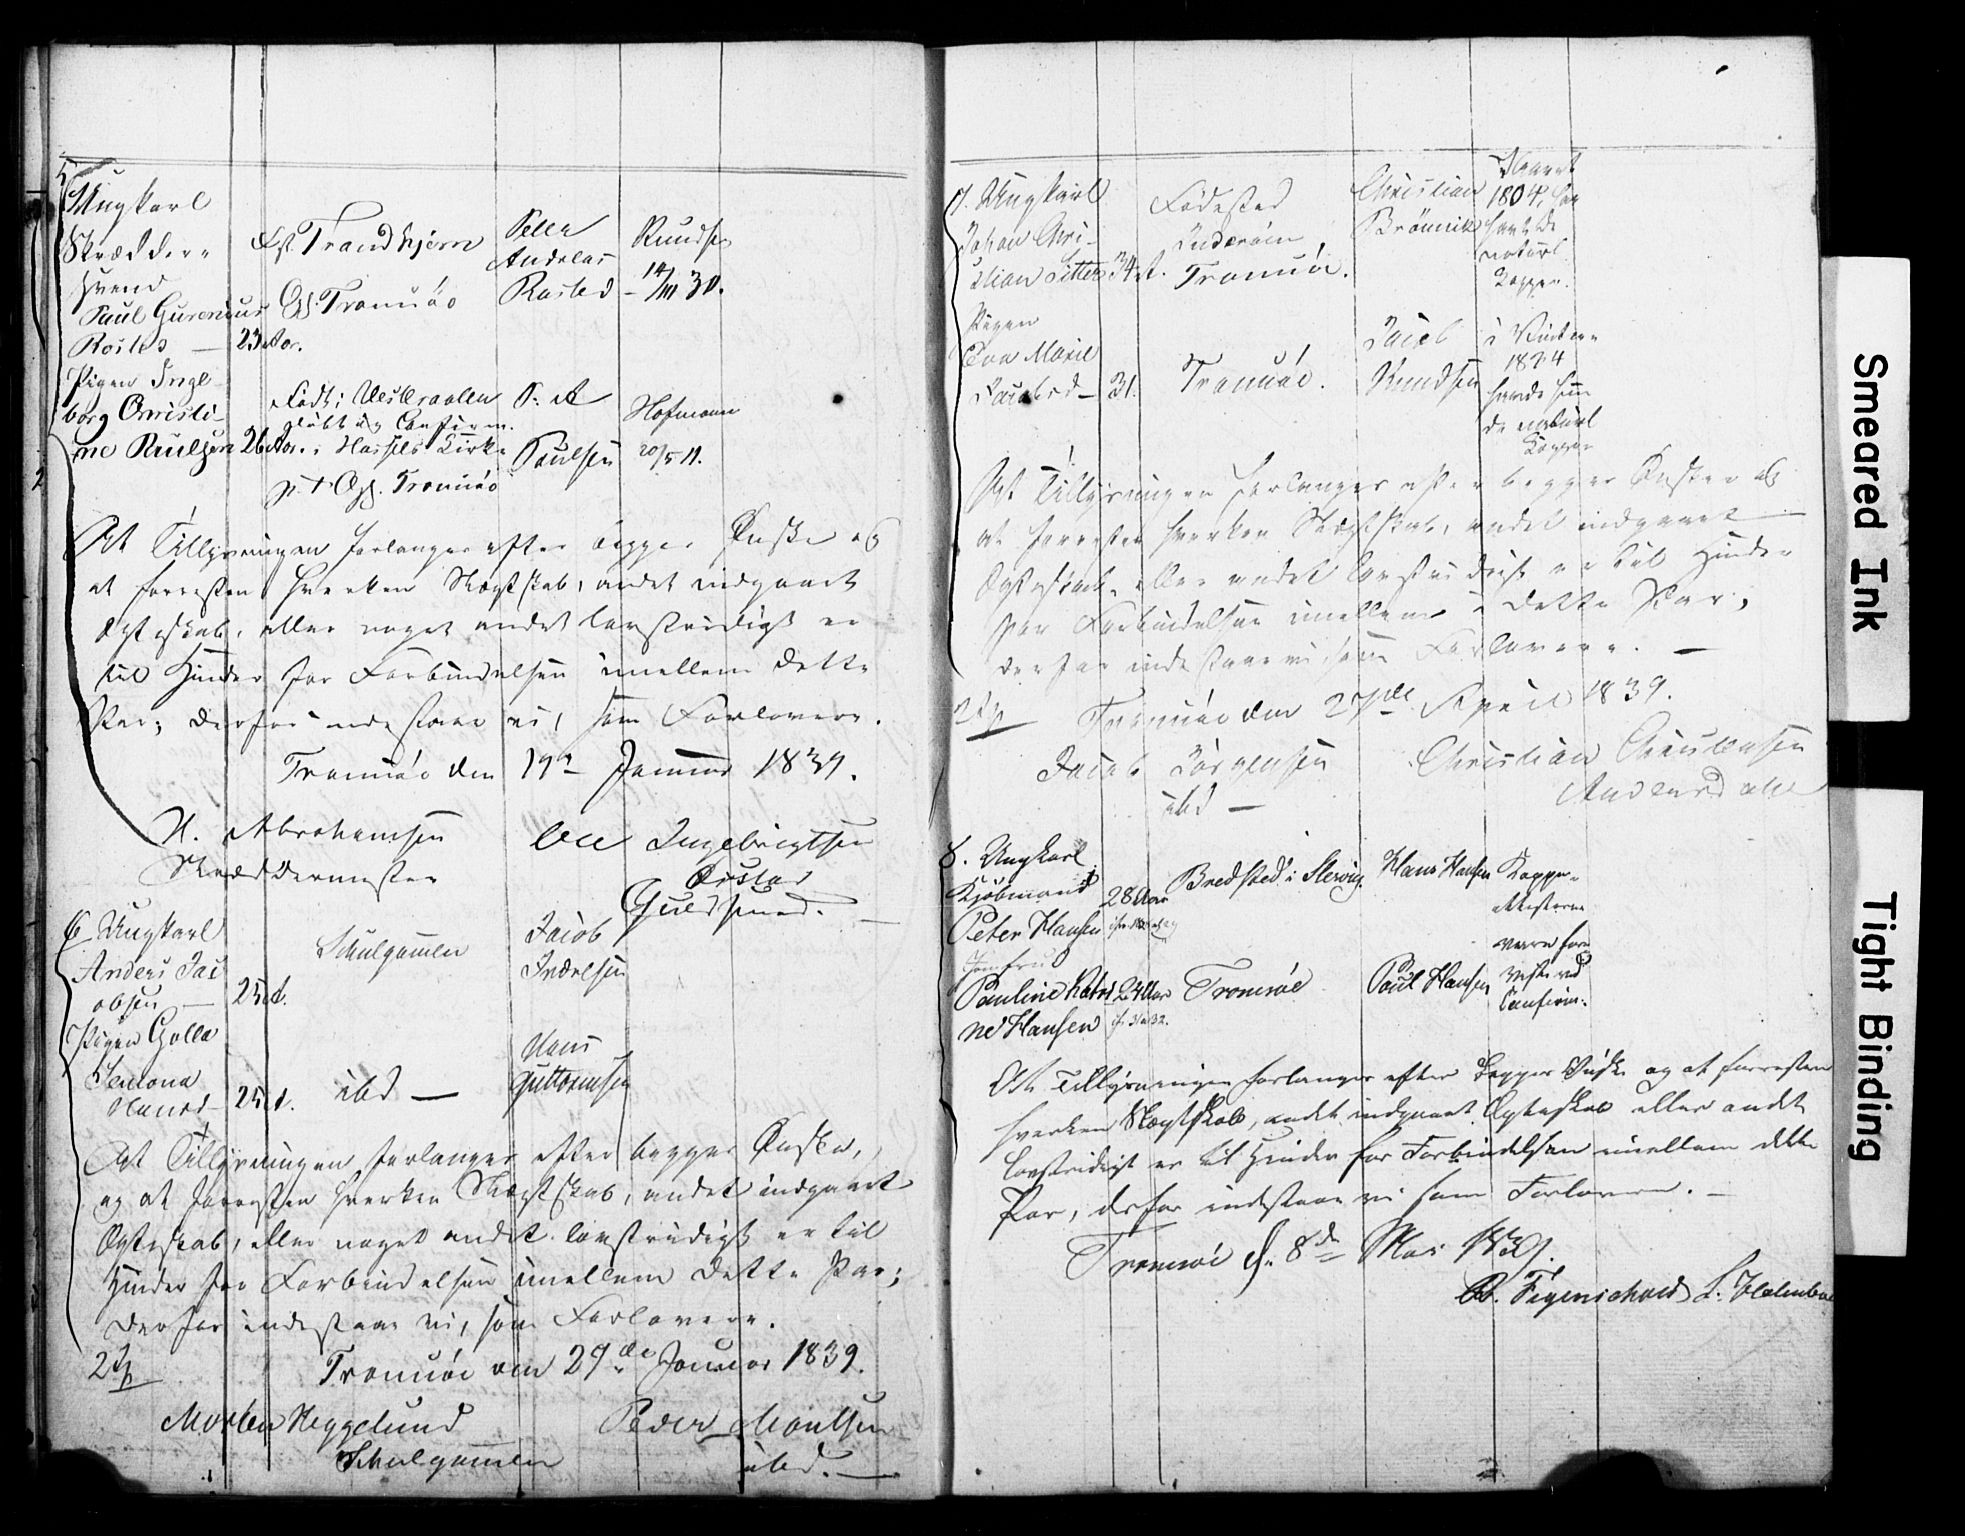 5.
Ungkarl
Skrædder-
svend
Paul Gurenius
Rosted — 23 Aar.
Fst. Trondhjem
Opf. Tromsøe
Peter
Andreas
Rosted
Knudsen
14/11 30.
Pigen Inge-
borg Christi-
ne Paulsen 26 Aar.
Født i Vesteraalen
døbt og Confirm.
i Hassels Kirke
p. t. Oph. Tromsøe
P. A.
Paulsen
Hofmann
20/5 11.
At Tillysningen forlanges efter begges Ønske og
at forresten hverken Slægtskab, andet indgaaet
Ægteskab, eller noget andet lovstridigt er
til Hinder for Forbindelsen imellem dette
Par; derfor indestaae vi, som Forlovere.
Tromsøe den 19de Januar 1839.
N. Abrahamsen
Skræddermester
Ole Ingebrigtsen
Guldsmed.
6 Ungkarl
Anders Jac-
obsen — 25 A.
Skulgammen
Jacob
Pigen Golla
Hansd — 25 A.
ibd —
Hans
Guttormsen
At Tillysningen forlanges efter begges Ønske,
og at forresten hverken Slægtskab, andet indgaaet
Ægteskab, eller noget andet lovstridigt er til
Hinder for Forbindelsen imellem dette Par;
derfor indestaae vi, som Forlovere.
Tromsøe den 29de Januar 1839.
Morten Heggelund
Skulgammen
Peder
ibd. —
7. Ungkarl
Johan Chri-
stian Sitter 34 A.
Fødested
Inderøen,
Tromsøe.
Christian
Brønnik
1804, har
havt de
naturl.
Kopper.
Pigen
Eva Marie
Jacobsd — 31.
Tromsøe.
Jacob
Knudsen
i Vinteren
1824
havde hun
de naturl
Kopper
At Tillysningen forlanges efter begges Ønske og
at forresten hverken Slægtskab, andet indgaaet
Ægteskab, eller andet lovstridigt er til Hinder
for Forbindelsen imellem dette Par,
derfor indestaae vi som Forlovere. —
Tromsøe den 27de April 1839.
Jacob Jørgensen
ibd —
Christian Christensen
Andersdalen
8. Ungkarl
Kjøbmand
Peter Hansen
28 Aar
Bredsted i Slesvig.
Hans Hansen
Koppe-
attesterne
Jomfru
Pauline Katri-
ne Hansen
24 Aar
Tromsøe
Paul Hansen
være fore-
viste ved
Confirm.
At Tillysningen forlanges efter begges Ønske og at forresten
hverken Slægtskab, andet indgaaet Ægteskab eller andet
lovstridigt er til Hinder for Forbindelsen imellem dette
Par, derfor indestaae vi som Forlovere. —
Tromsøe d. 8de Mai 1839.
A. Figenschoed L. Holmboe
Smeared Ink
Tight Binding